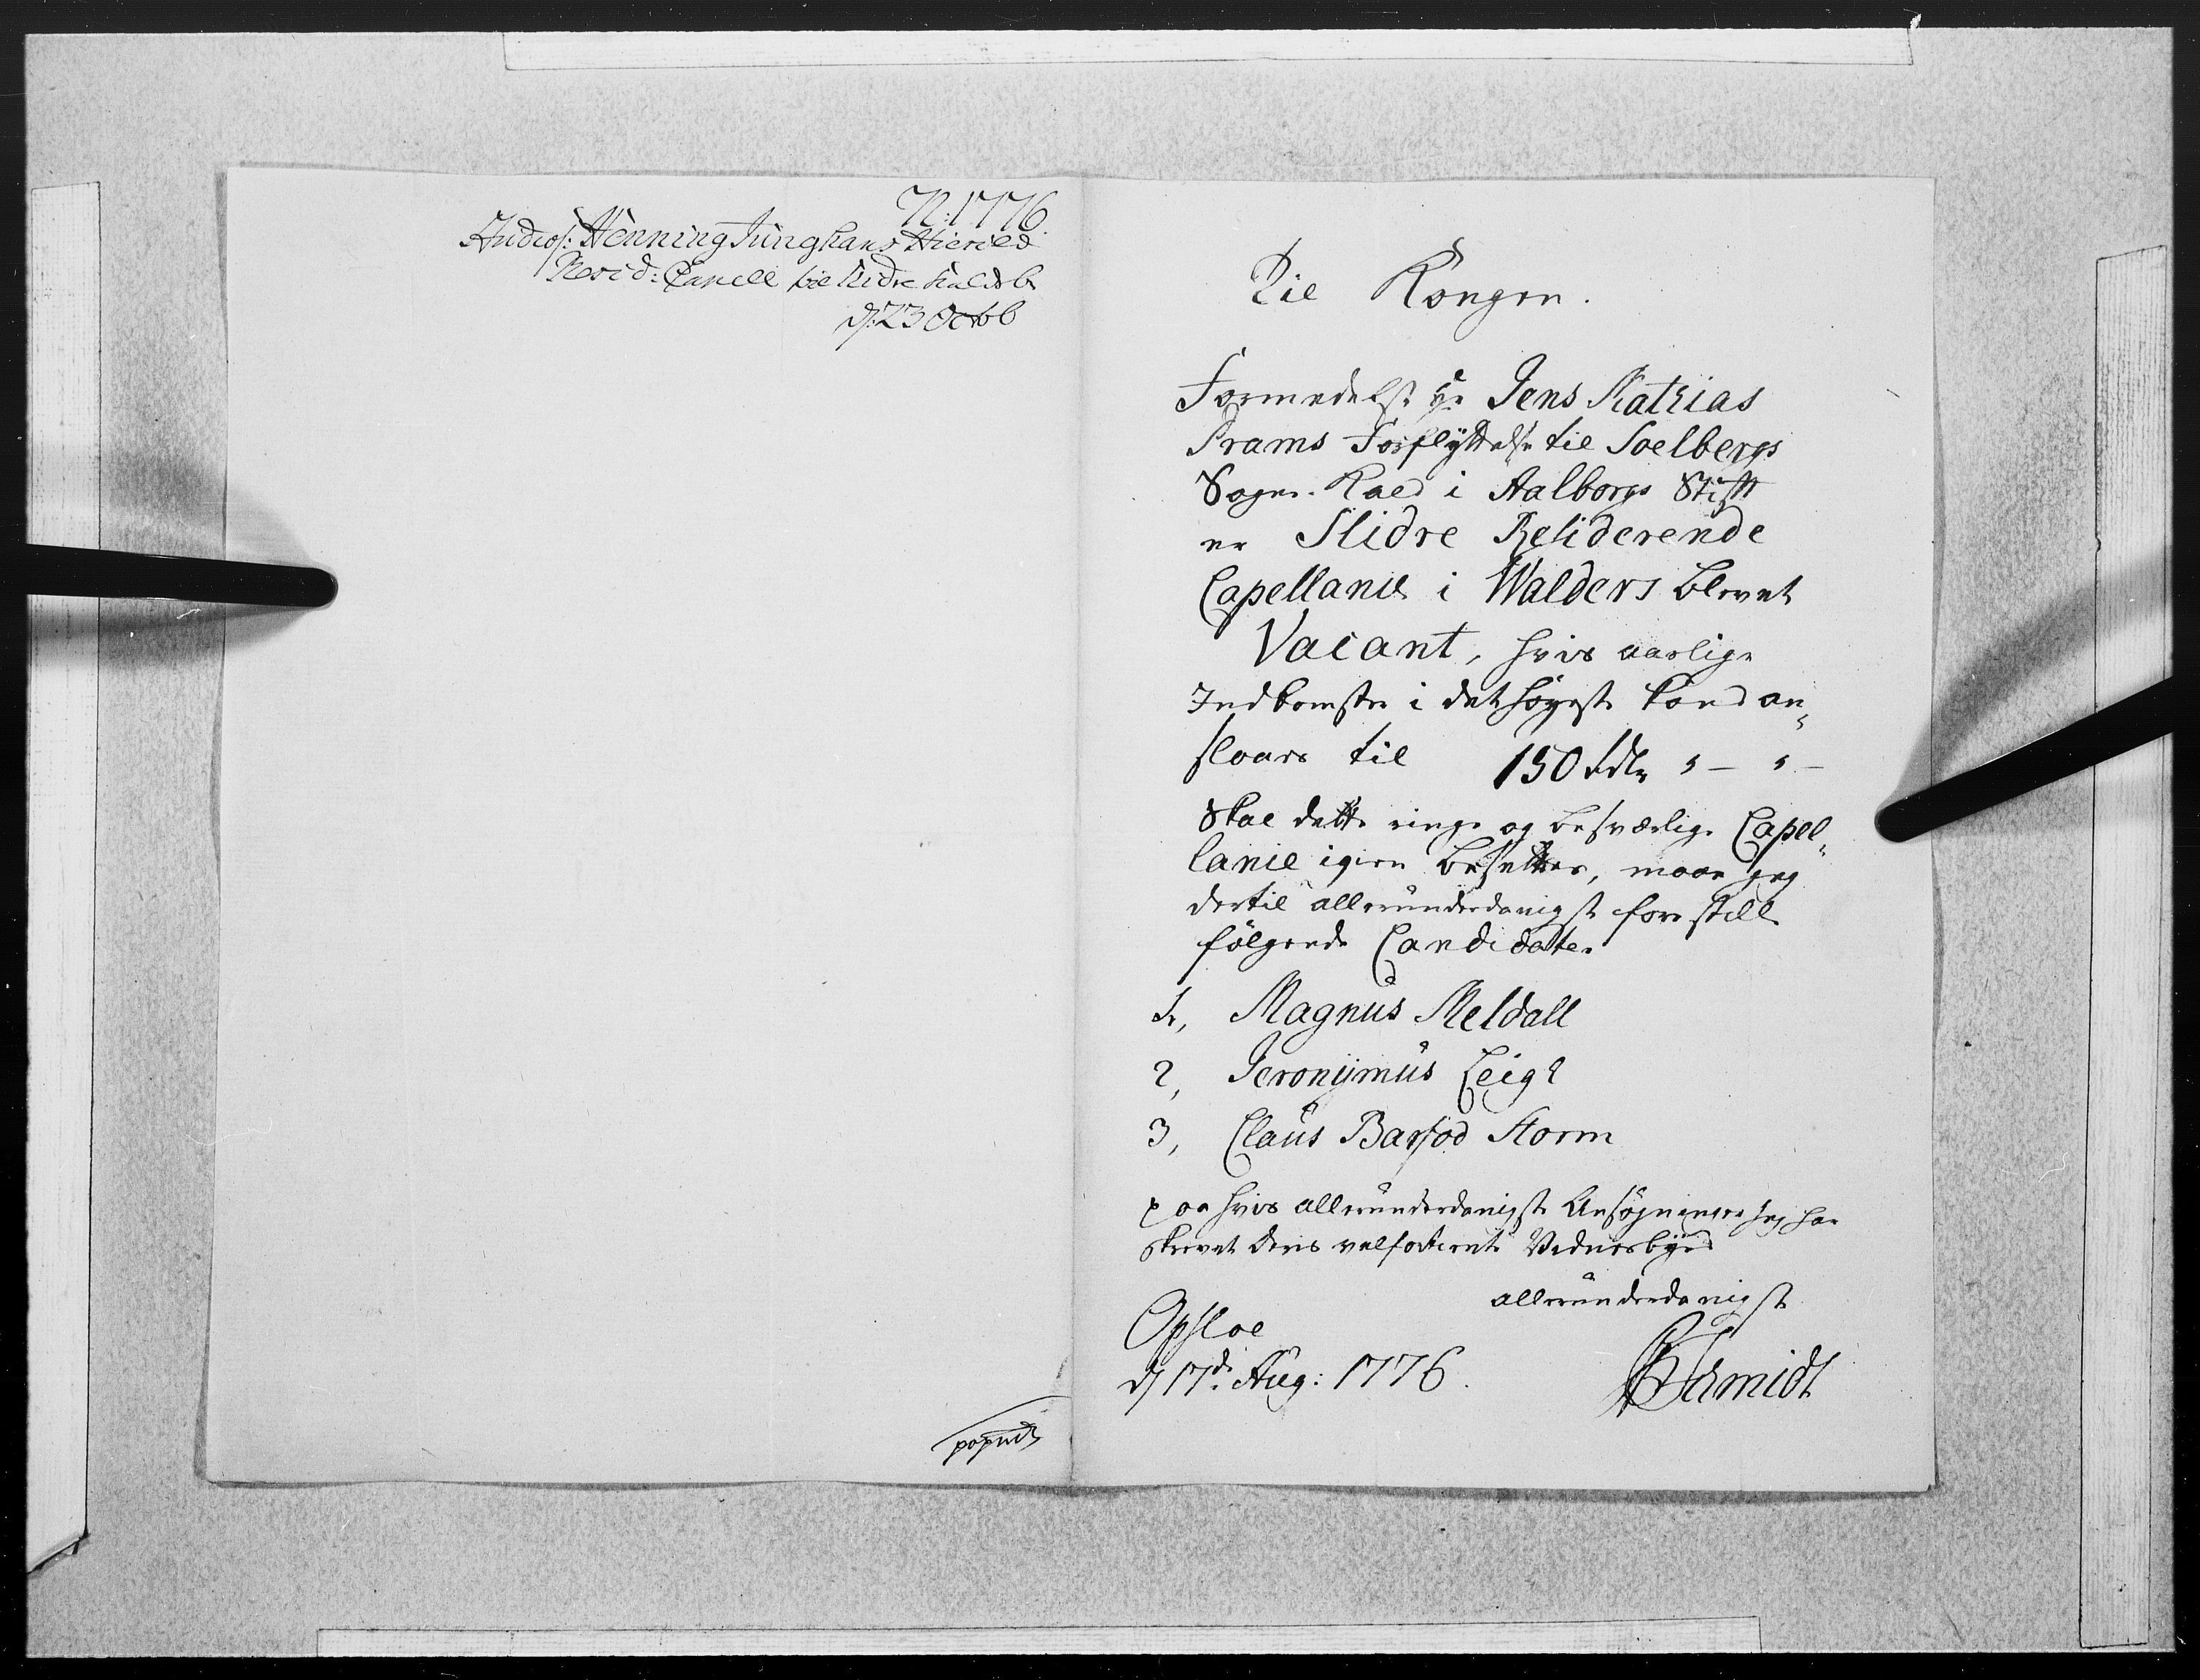 N: 1776.
Studios: Henning Junghans Hierild
Resid: Capell til Slidre Kald
d: 23 Octob
Til Kongen.
Formedelst Hr Jens Mathias
Prams Forflyttelse til Soelbergs
Sogne-Kald i Aalborgs Stift
er Slidre Residerende
Capellanie i Walders blevet
Vacant, hvis aarlige
Indkomster i det høyeste kand an„
slaaes til 150 rdlr „ — „ —
Skal dette ringe og besværlige Capel„
lanie igien besættes, maae jeg
dertil allerunderdanigst forestille
følgende Candidater
1, Magnus Meldall
2, Jeronymus Leigh
3, Claus Barfod Storm
paa hvis allerunderdanigste Ansøgninger jeg har
skrevet deres velfortiente Vidnesbyrd
allerunderdanigst
Opsloe
d 17de Aug: 1776.
Schmidt